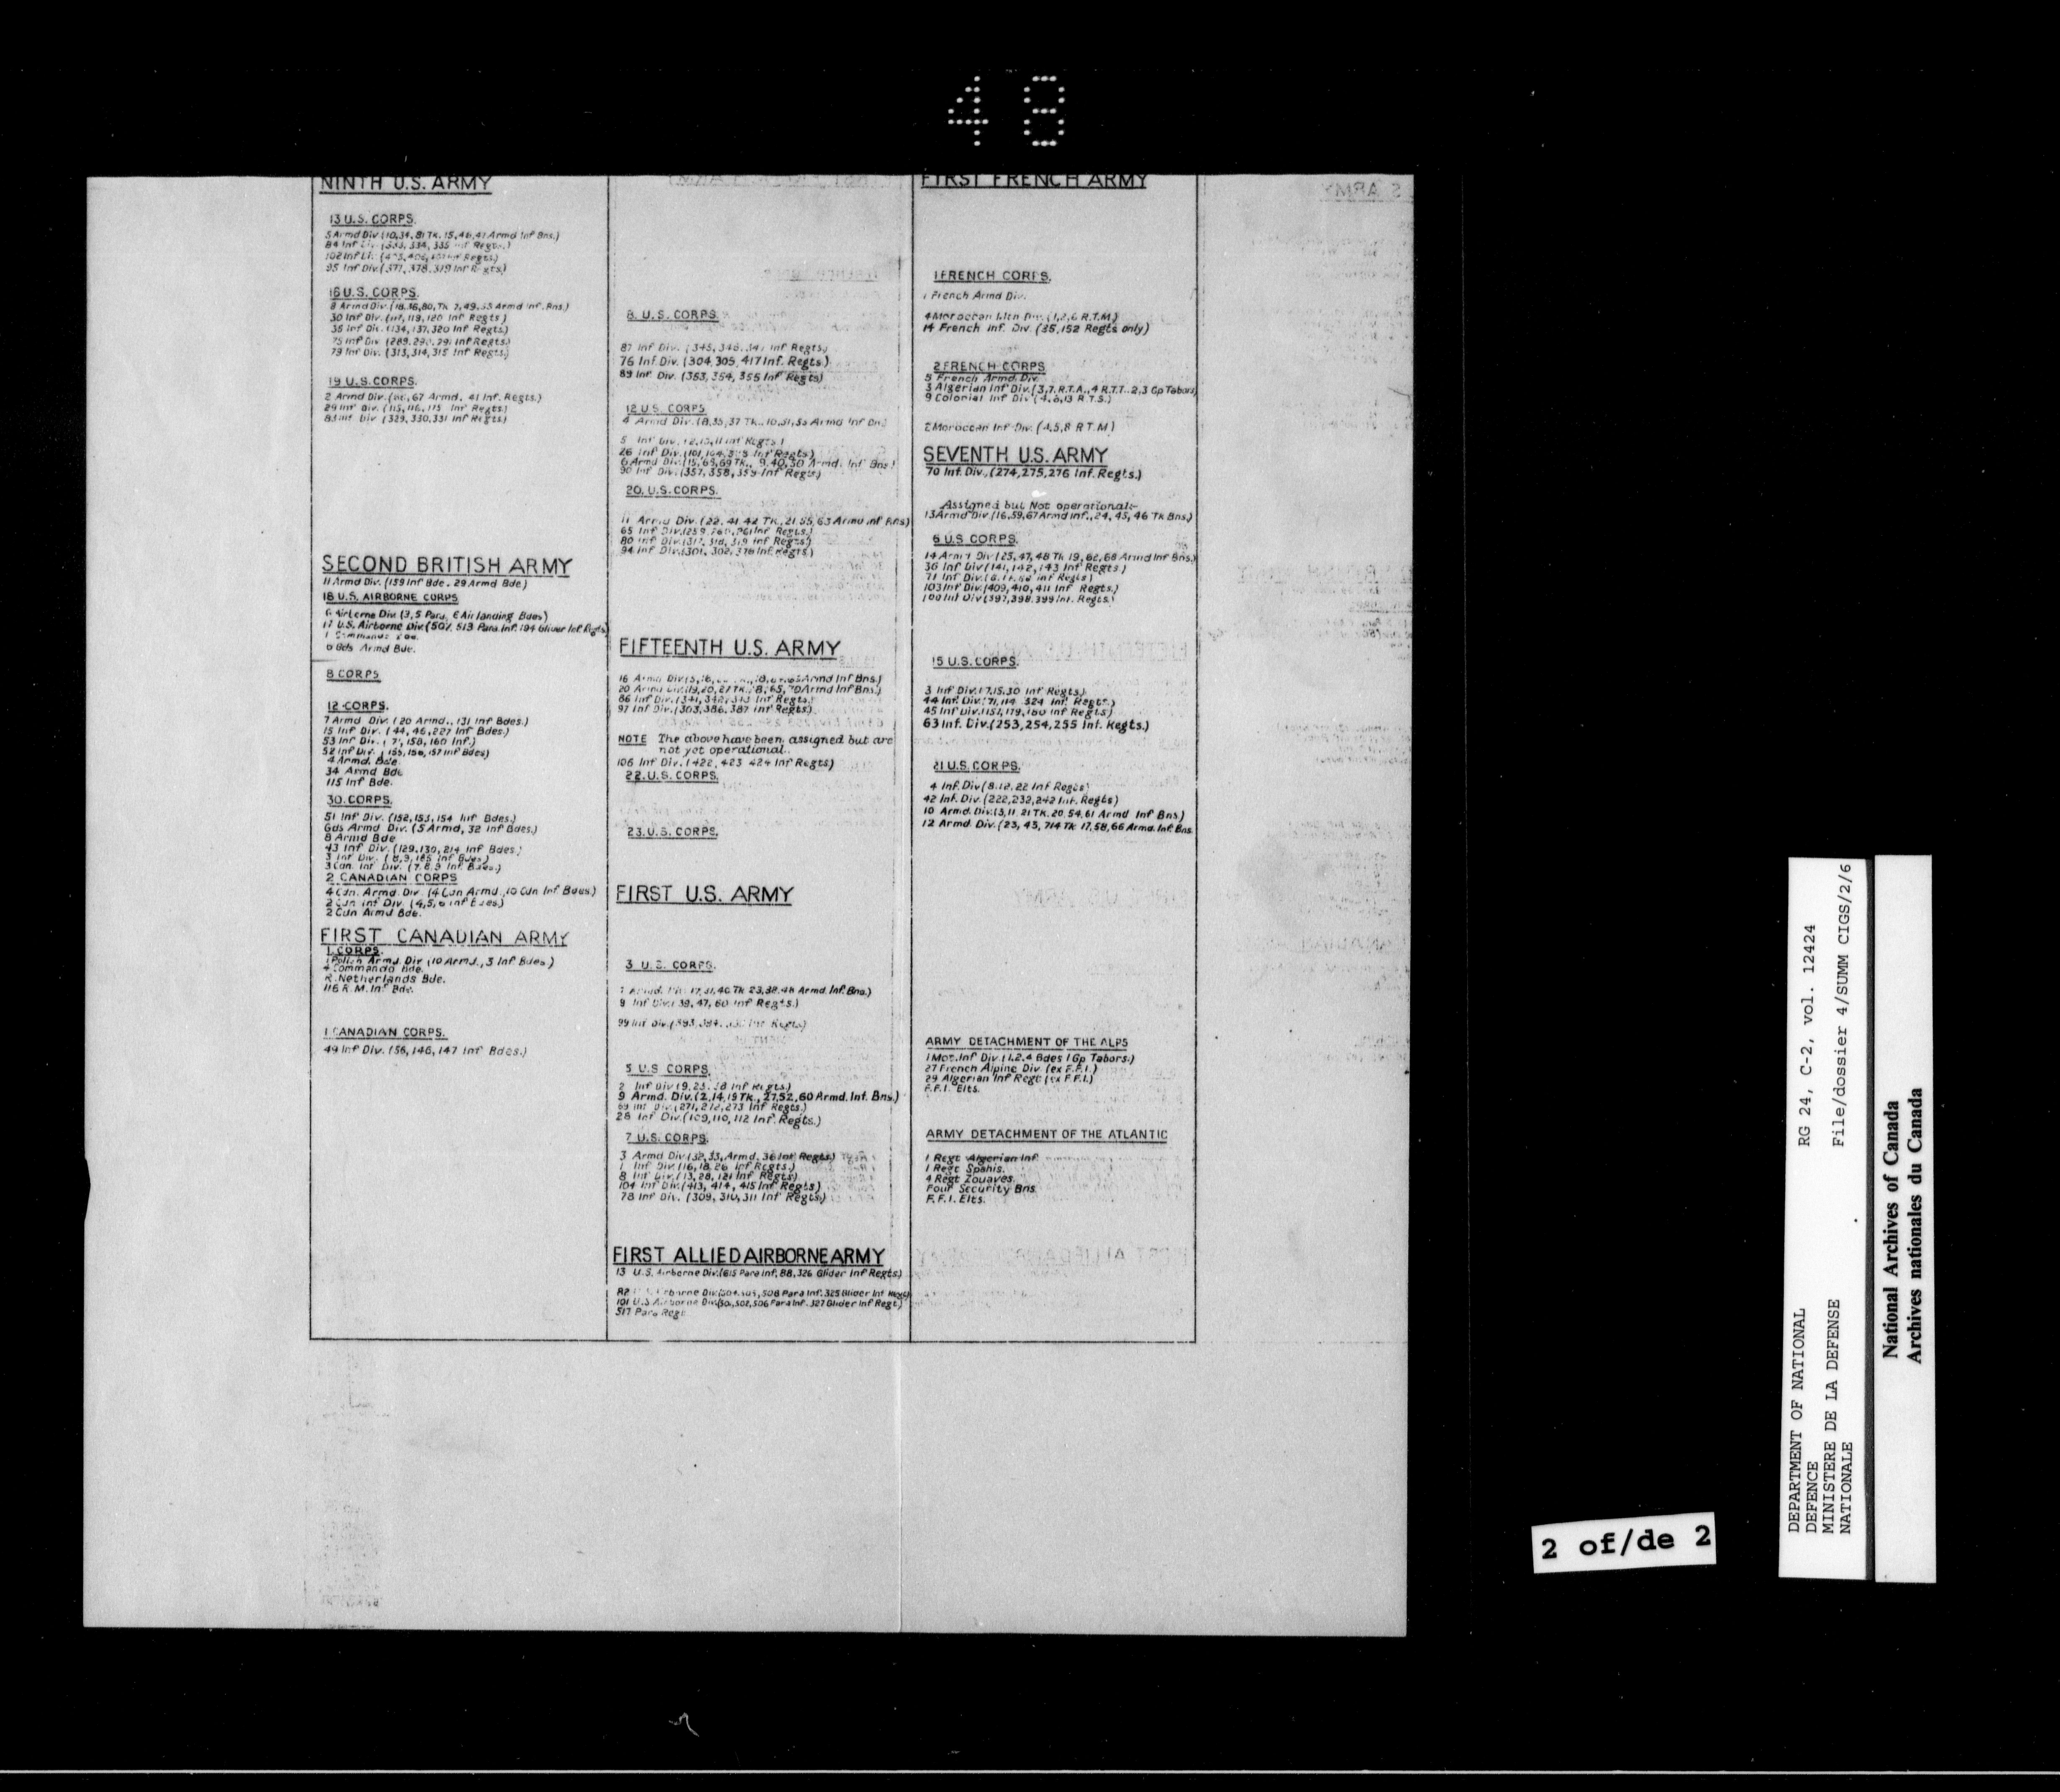 48
NINTH U.S. ARMY
13 U.S. CORPS.
5 Armd Div (10,34,81 Tk. 15,46,47 Armd Inf Bns.)
84 Inf (333, 334, 335 Inf Regts.)
102 Inf Regts.)
95 Inf Div. (377, 378, 379 Inf Regts)
16 U.S. CORPS.
8 Armd Div. (18,36,80, Tk 7, 49, 53 Armd Inf. Bns.)
30 Inf Div. (117, 119, 120 Inf Regts)
35 Inf Div. (134, 137, 320 Inf Regts.)
75 Inf Div (289, 290, 291 Inf Regts.)
79 Inf Div. (313, 314, 315 Inf Regts.)
19 U.S. CORPS.
2 Armd Div. (66, 67 Armd. 41 Inf. Regts.)
29 Inf Div. (115, 116, 175 Inf Regts.)
83 Inf Div (329, 330, 331 Inf Regts)
SECOND BRITISH ARMY
11 Armd Div. (159 Inf Bde. 29 Armd Bde)
18 U.S. AIRBORNE CORPS
6 Airborne Div (3, 5 Para, 6 Airlanding Bdes)
17 U.S. Airborne Div. (507, 513 Para Inf. 194 Glider Inf Regts)
1 Commando Bde.
6 Gds Armd Bde.
8 CORPS
12 CORPS.
7 Armd Div. (20 Armd., 131 Inf Bdes.)
15 Inf Div. (44, 46, 227 Inf Bdes.)
53 Inf Div. (71, 158, 160 Inf.)
52 Inf Div. (155, 156, 157 Inf Bdes)
4 Armd. Bde.
34 Armd Bde
115 Inf Bde.
30 CORPS.
51 Inf Div. (152, 153, 154 Inf Bdes.)
Gds Armd Div. (5 Armd, 32 Inf Bdes.)
8 Armd Bde
43 Inf Div. (129, 130, 214 Inf Bdes.)
3 Inf Div. (8, 9, 185 Inf Bdes)
3 Can. Inf Div. (7, 8, 9 Inf Bdes.)
2 CANADIAN CORPS
4 Cdn. Armd. Div (4 Cdn Armd., 10 Cdn Inf Bdes)
2 Cdn Inf Div. (4,5,6 Inf Bdes)
2 Cdn Armd Bde.
FIRST CANADIAN ARMY
1 CORPS.
1 Polish Armd. Div (10 Armd., 3 Inf Bdes)
4 Commando Bde.
R. Netherlands Bde.
116 R.M. Inf Bde.
1 CANADIAN CORPS.
49 Inf Div. (56, 146, 147 Inf Bdes.)
8. U.S. CORPS.
87 Inf Div. (345, 346, 347 Inf Regts)
76 Inf Div. (304, 305, 417 Inf. Regts.)
89 Inf Div. (353, 354, 355 Inf Regts)
12 U.S. CORPS
4 Armd Div. (8,35,37 Tk., 10,51,53 Armd Inf Bn.)
5 Inf Div. (2,10,11 Inf Regts)
26 Inf Div. (101, 104, 328 Inf Regts)
6 Armd Div. (15,68,69 Tk., 9, 40, 50 Armd. Inf Bns)
90 Inf Div. (357, 358, 359 Inf Regts)
20. U.S. CORPS.
11 Armd Div. (22, 41, 42 Tk., 21, 55, 63 Armd Inf Bns)
65 Inf Div. (259, 260, 261 Inf Regts.)
80 Inf Div. (317, 318, 319 Inf Regts.)
94 Inf Div. (301, 302, 376 Inf. Regts)
FIFTEENTH U.S. ARMY
16 Armd Div. Armd Inf Bns.)
20 Armd Div. (9,20,27 Tk., 8, 65, 70 Armd Inf Bns.)
86 Inf Div. (341, 342, 343 Inf Regts)
97 Inf Div. (303, 386, 387 Inf Regts)
NOTE The above have been assigned but are
not yet operational.
106 Inf Div. (422, 423 424 Inf Regts)
22. U.S. CORPS.
23. U.S. CORPS.
FIRST U.S. ARMY
3 U.S. CORPS.
7 Armd. Div. 17,31,40 Tk 23,38,48 Armd. Inf. Bns.)
9 Inf Div. (39, 47, 60 Inf Regts.)
99 Inf Div. (393, 394, 395 Inf Regts)
5 U.S CORPS.
2 Inf Div (9, 23, 38 Inf Regts.)
9 Armd. Div. (2, 14, 19 Tk., 27, 52, 60 Armd. Inf. Bns.)
69 Inf Div. (271, 272, 273 Inf Regts.)
28 Inf Div. (109, 110, 112 Inf. Regts.)
7 U.S. CORPS.
3 Armd Div (32, 33, Armd. 36 Inf Regts)
1 Inf Div. (16, 18, 26 Inf Regts.)
8 Inf Div. (13, 28, 121 Inf Regts)
104 Inf Div. (413, 414, 415 Inf Regts)
78 Inf Div. (309, 310, 311 Inf Regts)
FIRST ALLIED AIRBORNE ARMY
13 U.S. Airborne Div. (515 Para Inf, 88, 326 Glider Inf Regts)
82 U.S. Airborne Div. (504, 505, 508 Para Inf. 325 Glider Inf Regt)
101 U.S Airborne Div. 502, 506 Para Inf. 327 Glider Inf Regt.)
517 Para Regt
FIRST FRENCH ARMY
1 FRENCH CORPS.
1 French Armd Div.
4 Moroccan Mtn Div. (1,2,6 R.T.M.)
14 French Inf. Div (35, 152 Regts only)
2 FRENCH CORPS
5 French Armd. Div
3 Algerian Inf Div. (3,7. R.T.A., 4 R.T.T.. 2,3 Gp Tabors)
9 Colonial Inf Div (4, 6, 13 R.T.S.)
2 Moroccan Inf Div. (4,5,8 R T.M)
SEVENTH U.S. ARMY
70 Inf. Div., (274, 275, 276 Inf. Regts.)
Assigned but Not operational:-
13 Armd Div. (16, 59, 67 Armd Inf., 24, 45, 46 Tk Bns.)
6 U.S CORPS.
14 Armd Div (25, 47, 48 Tk 19, 62, 68 Armd Inf Bns.)
36 Inf Div (141, 142, 143 Inf Regts)
71 Inf Div. Inf Regts)
103 Inf Div. (409, 410, 411 Inf Regts.)
100 Inf Div (397, 398, 399 Inf. Regts.)
15 U.S. CORPS.
3 Inf Div. (7,15,30 Inf Regts.)
44 Inf. Div. (71, 114 324 Inf. Regts.)
45 Inf Div. (157, 179, 180 Inf Regts)
63 Inf. Div. (253, 254, 255 Inf. Regts.)
21 U.S. CORPS.
4 Inf. Div (8, 12, 22 Inf Regts)
42 Inf. Div. (222, 232, 242 Inf. Regts)
10 Armd. Div. (3, 11, 21 Tk. 20, 54, 61 Armd Inf Bns)
12 Armd. Div. (23, 43, 714 Tk 17, 56, 66 Armd. Inf. Bns.
ARMY DETACHMENT OF THE ALPS
1 Mot. Inf Div. (1,2,4 Bdes 1 Gp Tabors.)
27 French Alpine Div. (ex F.F.I.)
29 Algerian Inf Regt (ex F.F.I.)
F.F.I. Elts.
ARMY DETACHMENT OF THE ATLANTIC
1 Regt Algerian Inf
1 Regt Spahis.
4 Regt Zouaves.
Four Security Bns.
F.F.I. Elts.
2 of/de 2
DEPARTMENT OF NATIONAL
DEFENCE
MINISTERE DE LA DEFENSE
NATIONALE
RG 24, C-2, vol. 12424
File/dossier 4/SUMM CIGS/2/6
National Archives of Canada
Archives nationales du Canada